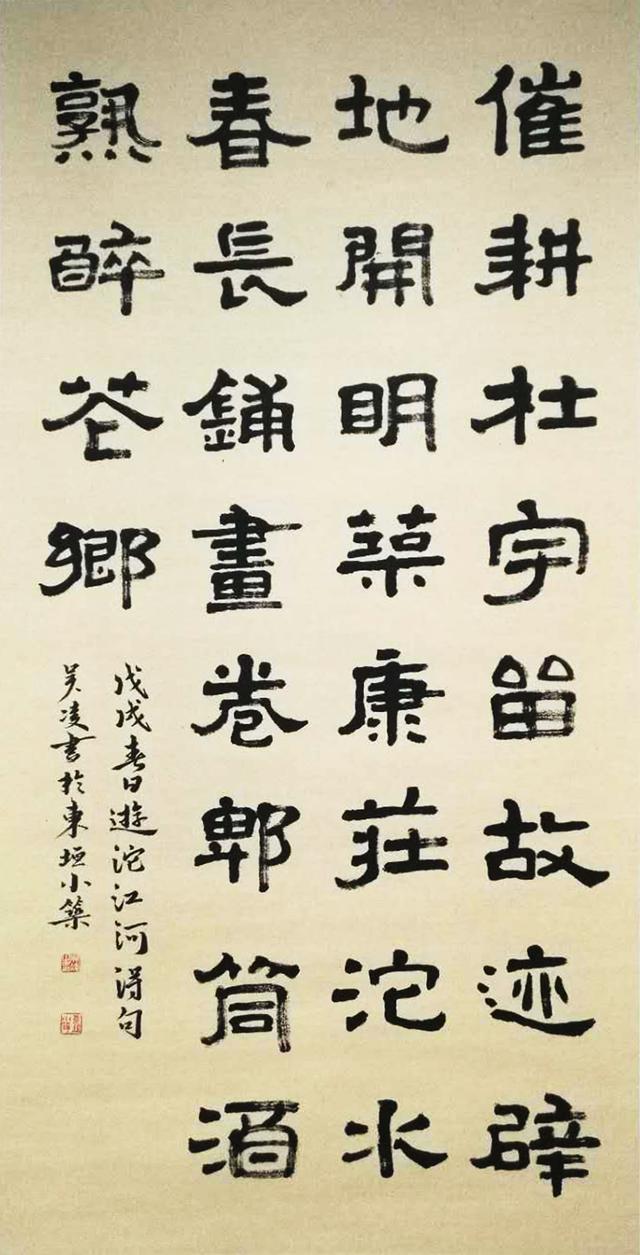 催耕杜宇留故迹辟
地開明築康莊沱水
春長鋪畫卷郫筒酒
熟醉花鄉
戊戌春日遊沱江河得句
吴凌書於東垣小築